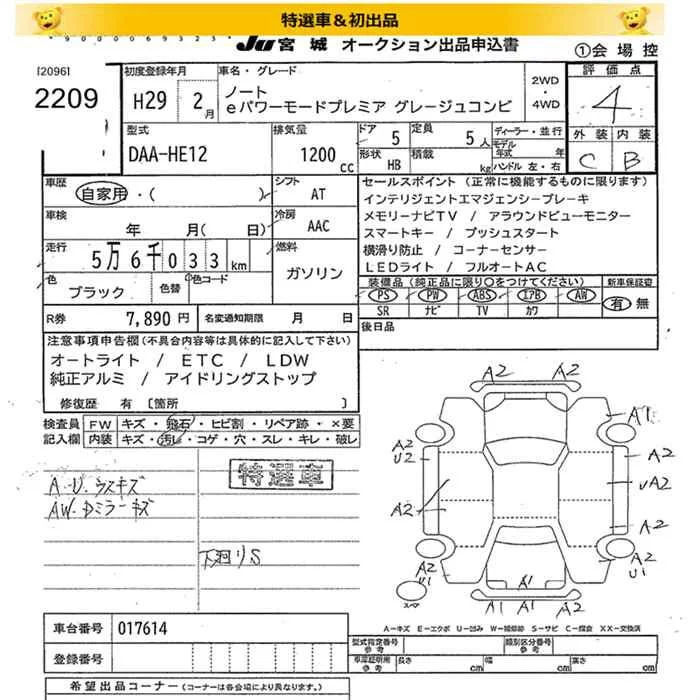 特選車&初出品
*9000069323*
JU 宮城 オークション出品申込書
①会場控
[2096]
2209
初度登録年月
H29 2月
車名・グレード
ノート
eパワーモードプレミア グレージュコンビ
2WD
・
4WD
評価点
4
外装 内装
C B
型式
DAA-HE12
排気量
1200cc
ドア 5
定員 5人
形状 HB
積載 kg
ディーラー・並行
モデル年式 年
ハンドル 左・右
車歴
自家用・( )
シフト
AT
車検
年 月( 日)
冷房
AAC
走行
5万6千033km
燃料
ガソリン
色
ブラック
色替
色コード
R券 7,890円
名変通知期限 月 日
セールスポイント (正常に機能するものに限ります)
インテリジェントエマジェンシーブレーキ
メモリーナビTV / アラウンドビューモニター
スマートキー / プッシュスタート
横滑り防止 / コーナーセンサー
LEDライト / フルオートAC
装備品 (純正品に限り○をつけてください)
新車保証書
PS PW ABS エアB AW
SR ナビ TV カワ
有 無
後日品
注意事項申告欄(不具合内容等は具体的に記入して下さい)
オートライト / ETC / LDW
純正アルミ / アイドリングストップ
修復歴 有 [箇所 ]
検査員
記入欄
FW キズ・飛石・ヒビ割・リペア跡・×要
内装 キズ・汚レ・コゲ・穴・スレ・キレ・破レ
特選車
A.U.ウスキズ
AW.Dミラーキズ
下廻りS
A2 A2
A1
A2
U2
A2
A2
A2
A2
A2
U1
A1
A2
U1
A1 A1 A2
スペア
A-キズ E-エクボ U-凹み W-補修跡 S-サビ C-腐食 XX-交換済
車台番号 017614
登録番号
型式指定番号
類別区分番号
車庫証明用参考
長さ cm
幅 cm
高さ cm
希望出品コーナー (コーナーは各会場により異なります。)